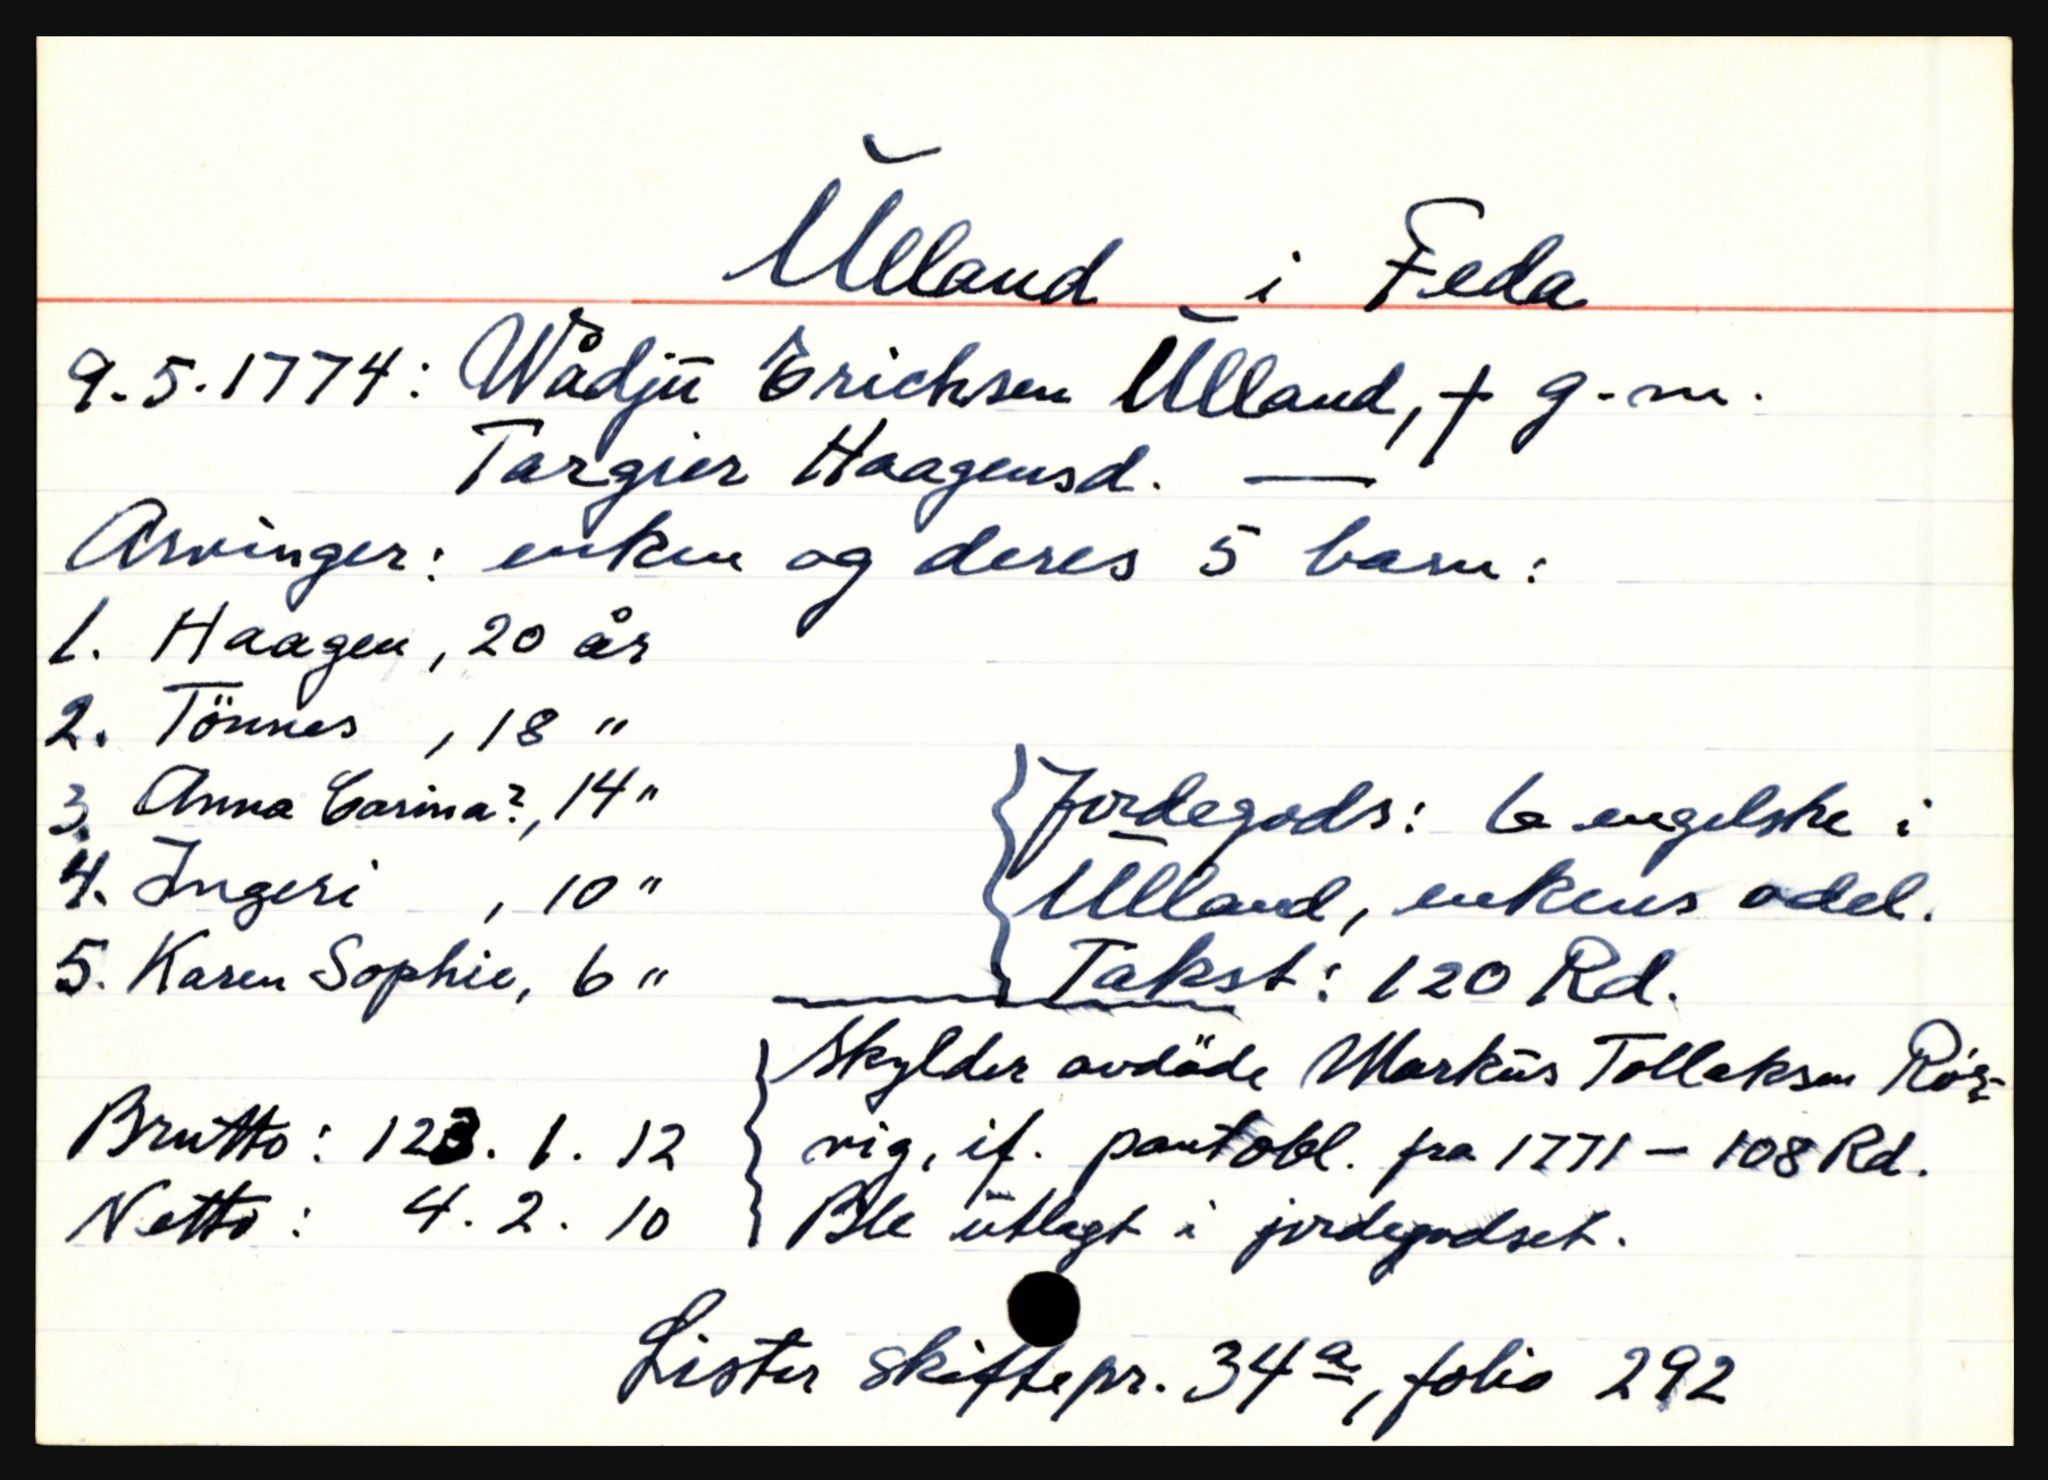 Ulland i Feda
9.5.1774: Wådju Erichsen Ulland, † g.m.
Targier Haagensd. —
Arvinger: enken og deres 5 barn:
1. Haagen, 20 år
2. Tönnes, 18 "
3. Anna Carina?, 14 "
4. Ingeri, 10 "
5. Karen Sophie, 6 "
Jordegods: 6 engelske i
Ulland, enkens odel.
Takst: 120 Rd.
Skylder avdöde Markus Tollaksen Rör-
vig, if. pantobl. fra 1771 — 108 Rd.
Ble utlagt i jordegodset.
Brutto: 123. 1. 12
Netto: 4. 2. 10
Lister skiftepr. 34a, folio 292